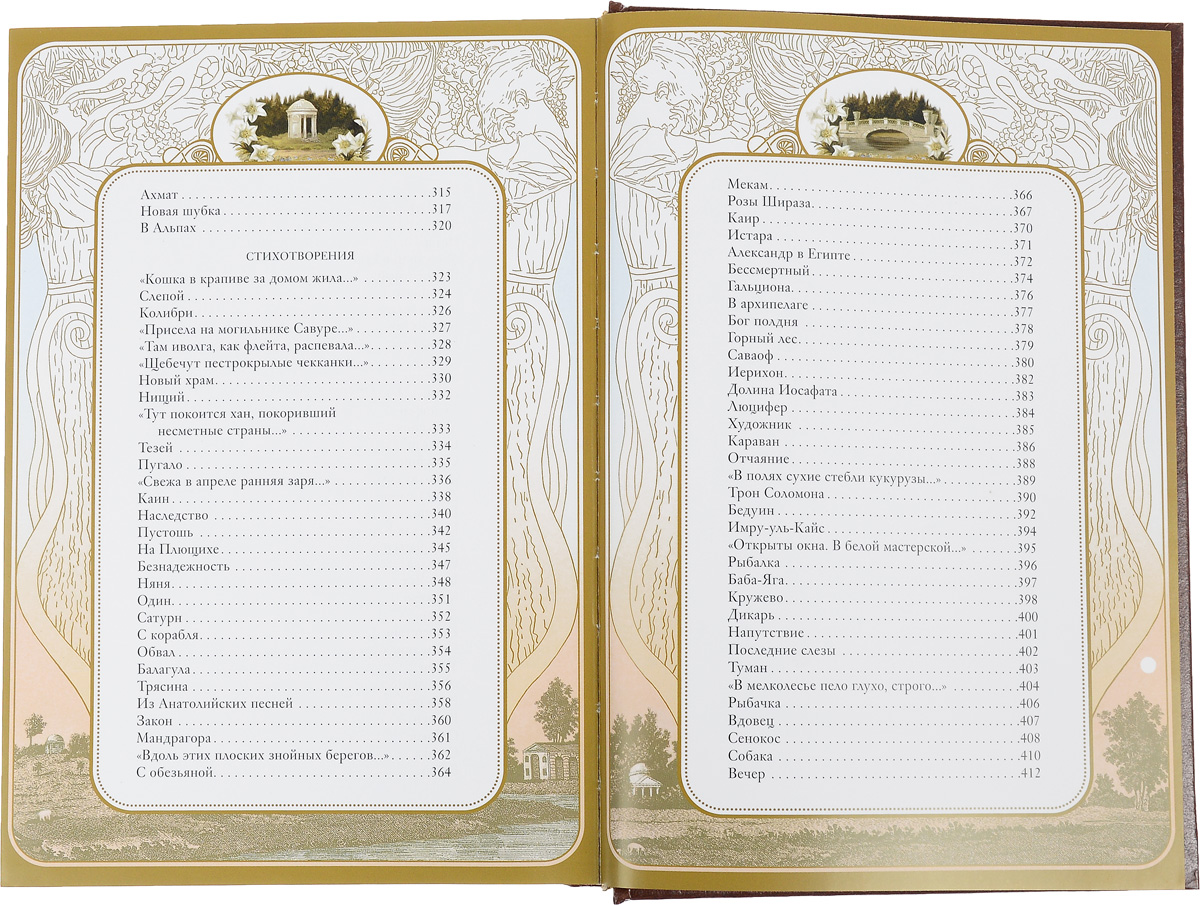 Ахмат . . . . . . . . . . . . . . . . . . . . . . . . . . . . . 315
Новая шубка . . . . . . . . . . . . . . . . . . . . . . . . 317
В Альпах . . . . . . . . . . . . . . . . . . . . . . . . . . 320
СТИХОТВОРЕНИЯ
«Кошка в крапиве за домом жила...» . . . . . . . . . . 323
Слепой . . . . . . . . . . . . . . . . . . . . . . . . . . . . 324
Колибри . . . . . . . . . . . . . . . . . . . . . . . . . . . 326
«Присела на могильнике Савуре...» . . . . . . . . . . 327
«Там иволга, как флейта, распевала...» . . . . . . . . 328
«Щебечут пестрокрылые чекканки...» . . . . . . . . . 329
Новый храм . . . . . . . . . . . . . . . . . . . . . . . . 330
Нищий . . . . . . . . . . . . . . . . . . . . . . . . . . . . 332
«Тут покоится хан, покоривший
несметные страны...» . . . . . . . . . . . . . . . . 333
Тезей . . . . . . . . . . . . . . . . . . . . . . . . . . . . . 334
Пугало . . . . . . . . . . . . . . . . . . . . . . . . . . . . 335
«Свежа в апреле ранняя заря...» . . . . . . . . . . . . 336
Каин . . . . . . . . . . . . . . . . . . . . . . . . . . . . . 338
Наследство . . . . . . . . . . . . . . . . . . . . . . . . . 340
Пустошь . . . . . . . . . . . . . . . . . . . . . . . . . . . 342
На Плющихе . . . . . . . . . . . . . . . . . . . . . . . . 345
Безнадежность . . . . . . . . . . . . . . . . . . . . . . . 347
Няня . . . . . . . . . . . . . . . . . . . . . . . . . . . . . 348
Один . . . . . . . . . . . . . . . . . . . . . . . . . . . . . 351
Сатурн . . . . . . . . . . . . . . . . . . . . . . . . . . . . 352
С корабля . . . . . . . . . . . . . . . . . . . . . . . . . . 353
Обвал . . . . . . . . . . . . . . . . . . . . . . . . . . . . 354
Балагула . . . . . . . . . . . . . . . . . . . . . . . . . . . 355
Трясина . . . . . . . . . . . . . . . . . . . . . . . . . . . 356
Из Анатолийских песней . . . . . . . . . . . . . . . . 358
Закон . . . . . . . . . . . . . . . . . . . . . . . . . . . . 360
Мандрагора . . . . . . . . . . . . . . . . . . . . . . . . . 361
«Вдоль этих плоских знойных берегов...» . . . . . . 362
С обезьяной . . . . . . . . . . . . . . . . . . . . . . . . 364
Мекам . . . . . . . . . . . . . . . . . . . . . . . . . . . . 366
Розы Шираза . . . . . . . . . . . . . . . . . . . . . . . . 367
Каир . . . . . . . . . . . . . . . . . . . . . . . . . . . . . 370
Истара . . . . . . . . . . . . . . . . . . . . . . . . . . . . 371
Александр в Египте . . . . . . . . . . . . . . . . . . . 372
Бессмертный . . . . . . . . . . . . . . . . . . . . . . . . 374
Гальциона . . . . . . . . . . . . . . . . . . . . . . . . . . 376
В архипелаге . . . . . . . . . . . . . . . . . . . . . . . . 377
Бог полдня . . . . . . . . . . . . . . . . . . . . . . . . . 378
Горный лес . . . . . . . . . . . . . . . . . . . . . . . . . 379
Саваоф . . . . . . . . . . . . . . . . . . . . . . . . . . . . 380
Иерихон . . . . . . . . . . . . . . . . . . . . . . . . . . . 382
Долина Иосафата . . . . . . . . . . . . . . . . . . . . . 383
Люцифер . . . . . . . . . . . . . . . . . . . . . . . . . . 384
Художник . . . . . . . . . . . . . . . . . . . . . . . . . . 385
Караван . . . . . . . . . . . . . . . . . . . . . . . . . . . 386
Отчаяние . . . . . . . . . . . . . . . . . . . . . . . . . . 388
«В полях сухие стебли кукурузы...» . . . . . . . . . . 389
Трон Соломона . . . . . . . . . . . . . . . . . . . . . . 390
Бедуин . . . . . . . . . . . . . . . . . . . . . . . . . . . . 392
Имру-уль-Кайс . . . . . . . . . . . . . . . . . . . . . . 394
«Открыты окна. В белой мастерской...» . . . . . . . 395
Рыбалка . . . . . . . . . . . . . . . . . . . . . . . . . . . 396
Баба-Яга . . . . . . . . . . . . . . . . . . . . . . . . . . . 397
Кружево . . . . . . . . . . . . . . . . . . . . . . . . . . . 398
Дикарь . . . . . . . . . . . . . . . . . . . . . . . . . . . . 400
Напутствие . . . . . . . . . . . . . . . . . . . . . . . . . 401
Последние слезы . . . . . . . . . . . . . . . . . . . . . 402
Туман . . . . . . . . . . . . . . . . . . . . . . . . . . . . 403
«В мелколесье пело глухо, строго...» . . . . . . . . . 404
Рыбачка . . . . . . . . . . . . . . . . . . . . . . . . . . . 406
Вдовец . . . . . . . . . . . . . . . . . . . . . . . . . . . . 407
Сенокос . . . . . . . . . . . . . . . . . . . . . . . . . . . 408
Собака . . . . . . . . . . . . . . . . . . . . . . . . . . . . 410
Вечер . . . . . . . . . . . . . . . . . . . . . . . . . . . . . 412